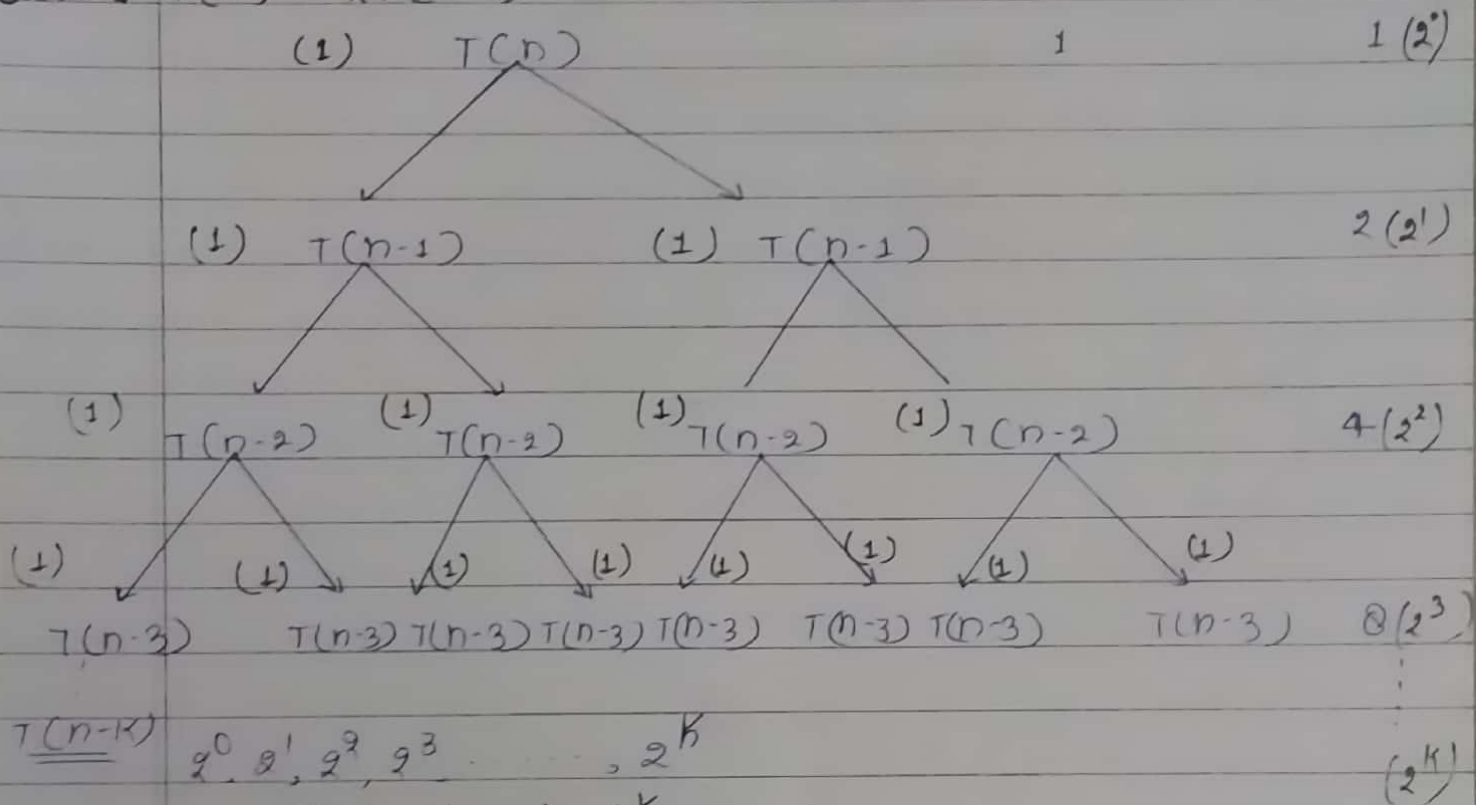 (1) T(n) 1 1 (2⁰)
(1) T(n-1) (1) T(n-1) 2 (2¹)
(1) T(n-2) (1) T(n-2) (1) T(n-2) (1) T(n-2) 4 (2²)
(1) (1) (1) (1) (1) (1) (1) (1)
T(n-3) T(n-3) T(n-3) T(n-3) T(n-3) T(n-3) T(n-3) T(n-3) 8 (2³)
T(n-k) 2⁰, 2¹, 2², 2³ ......, 2ᵏ
(2ᵏ)